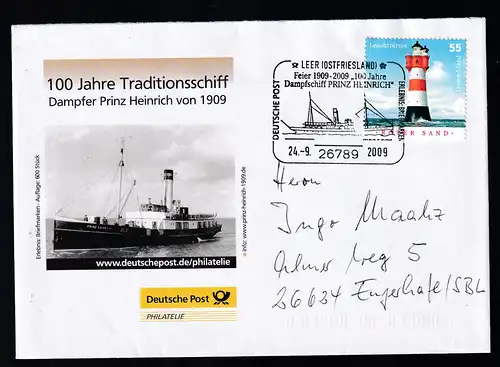 100 Jahre Traditionsschiff
Dampfer Prinz Heinrich von 1909
Erlebnis: Briefmarken - Auflage: 600 Stück
info: www.prinz-heinrich-1909.de
PRINZ HEINRICH
www.deutschepost.de/philatelie
Deutsche Post
PHILATELIE
DEUTSCHE POST
LEER (OSTFRIESLAND)
Feier 1909-2009 „100 Jahre
Dampfschiff PRINZ HEINRICH"
ERLEBNIS: BRIEFMARKEN
24.-9. 26789 2009
Leuchttürme
55
ROTER SAND
Herrn
Ingo Maaltz
Weg 5
26634 Engerhafe/SBL